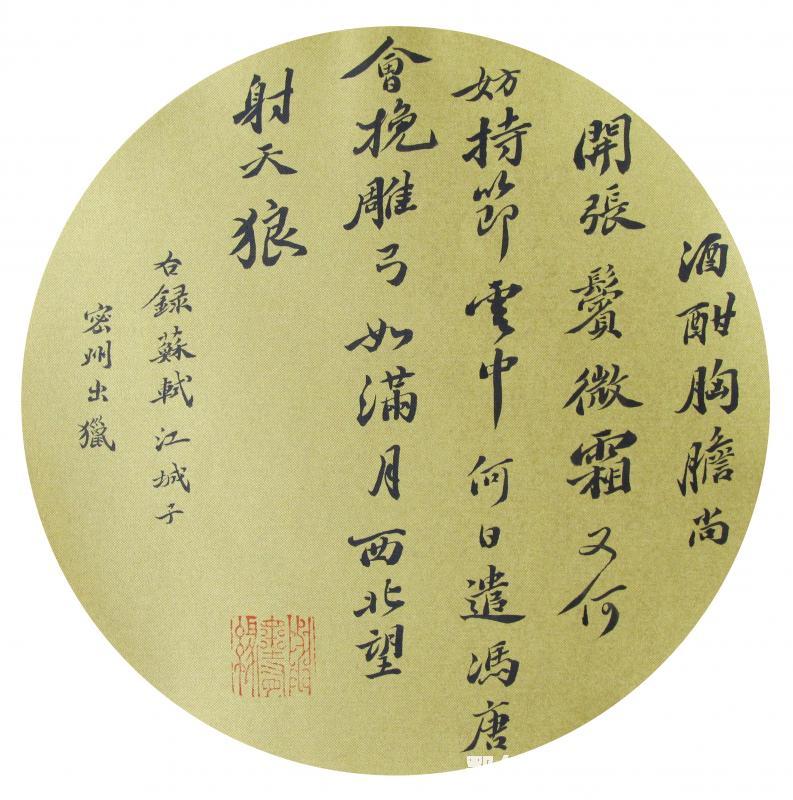 酒酣胸膽尚
開張鬢微霜又何
妨持節雲中何日遣馮唐
會挽雕弓如滿月西北望
射天狼
右録蘇軾江城子
密州出獵